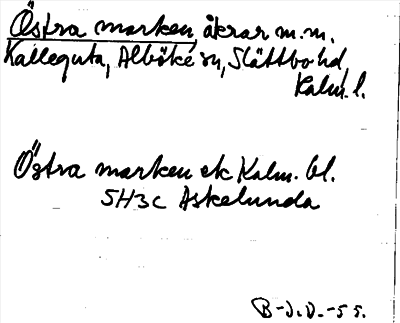 Östra marken, åkrar m.m.
Kalleguta, Alböke sn, Slättbo hd,
Kalm. l.
Östra marken ek Kalm. bl.
5H3c Askelunda
B-J.D.-55.